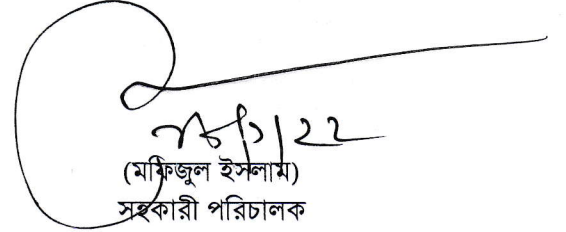 (মফিজুল ইসলাম)
সহকারী পরিচালক